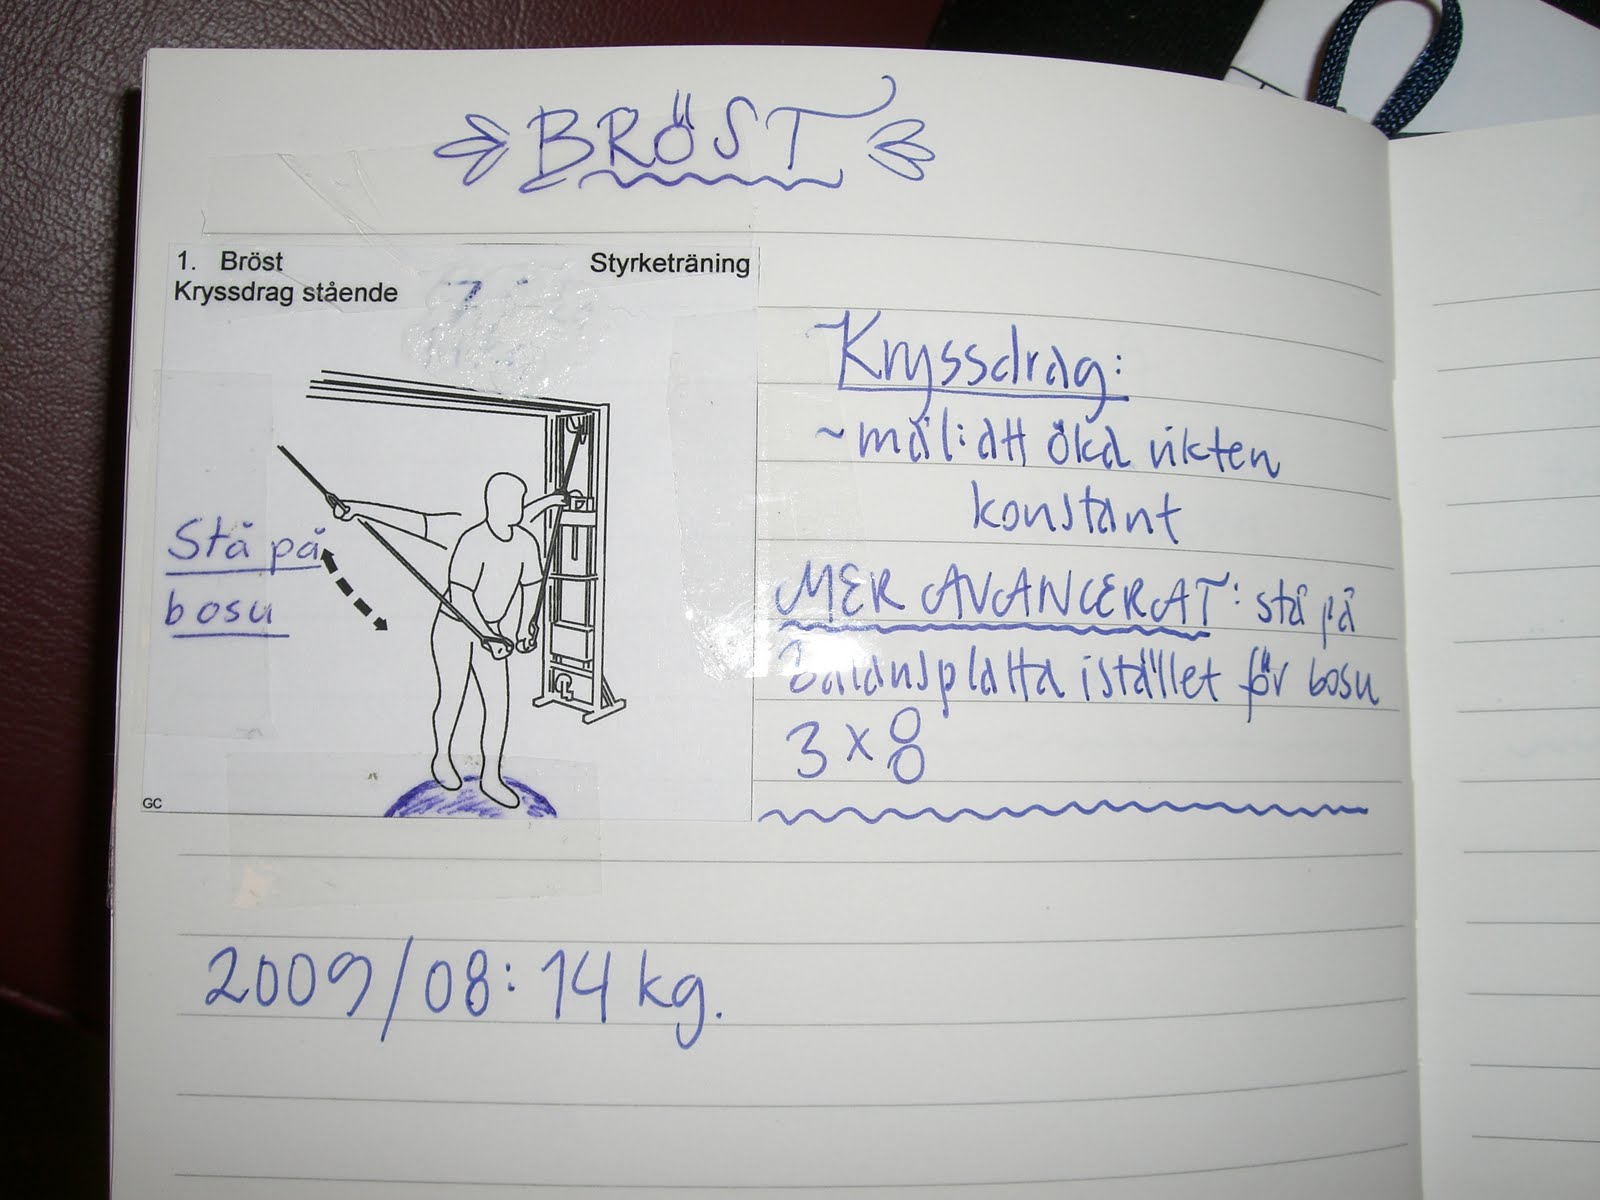 BRÖST
1. Bröst Styrketräning
Kryssdrag stående
Stå på
bosu
GC
Kryssdrag:
~mål: att öka vikten
konstant
MER AVANCERAT: stå på
Balansplatta istället för bosu
3 x 8
2009/08: 14 kg.